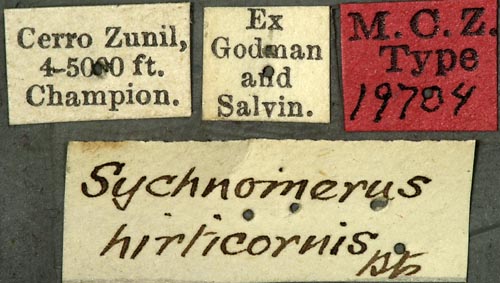 Cerro Zunil,
4-5000 ft.
Champion.
Ex
Godman
and
Salvin.
M.C.Z.
Type
19704
Sychnomerus
hirticornis Bts